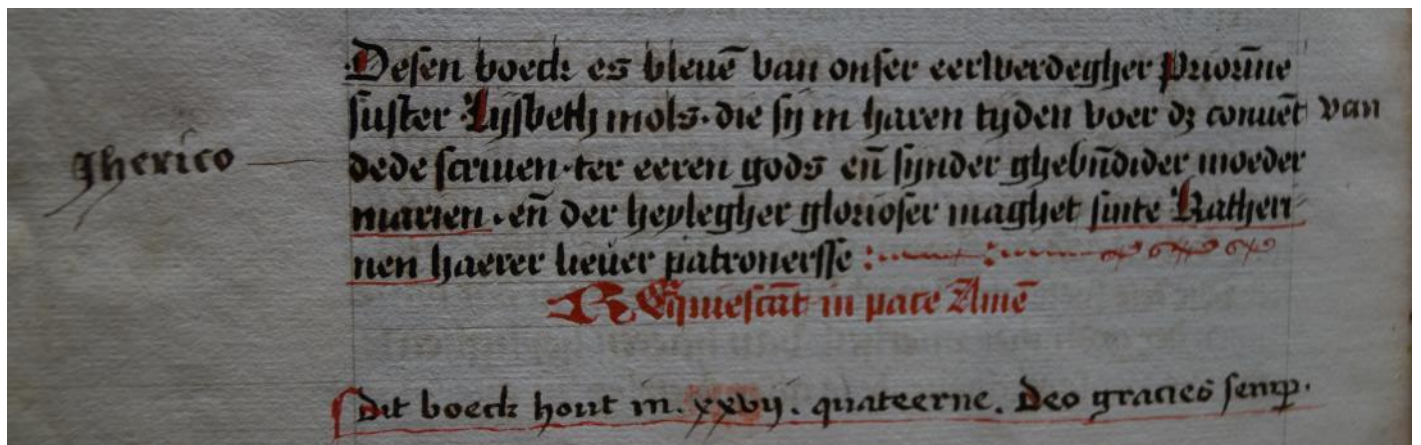 Desen boeck es bleuē van onser eerwerdegher Priorīne
suster Lijsbeth mols · die sij in haren tyden voer dz conuēt van
Jherico
dede scriuen · ter eeren gods eñ sijnder ghebn̄dider moeder
marien · eñ der heylegher glorioser maghet sinte Katheri-
nen haerer lieuer patronersse
REquiescāt in pace Amē
Dit boeck hout in . xxvij . quateerne . Deo gracies semꝑ .